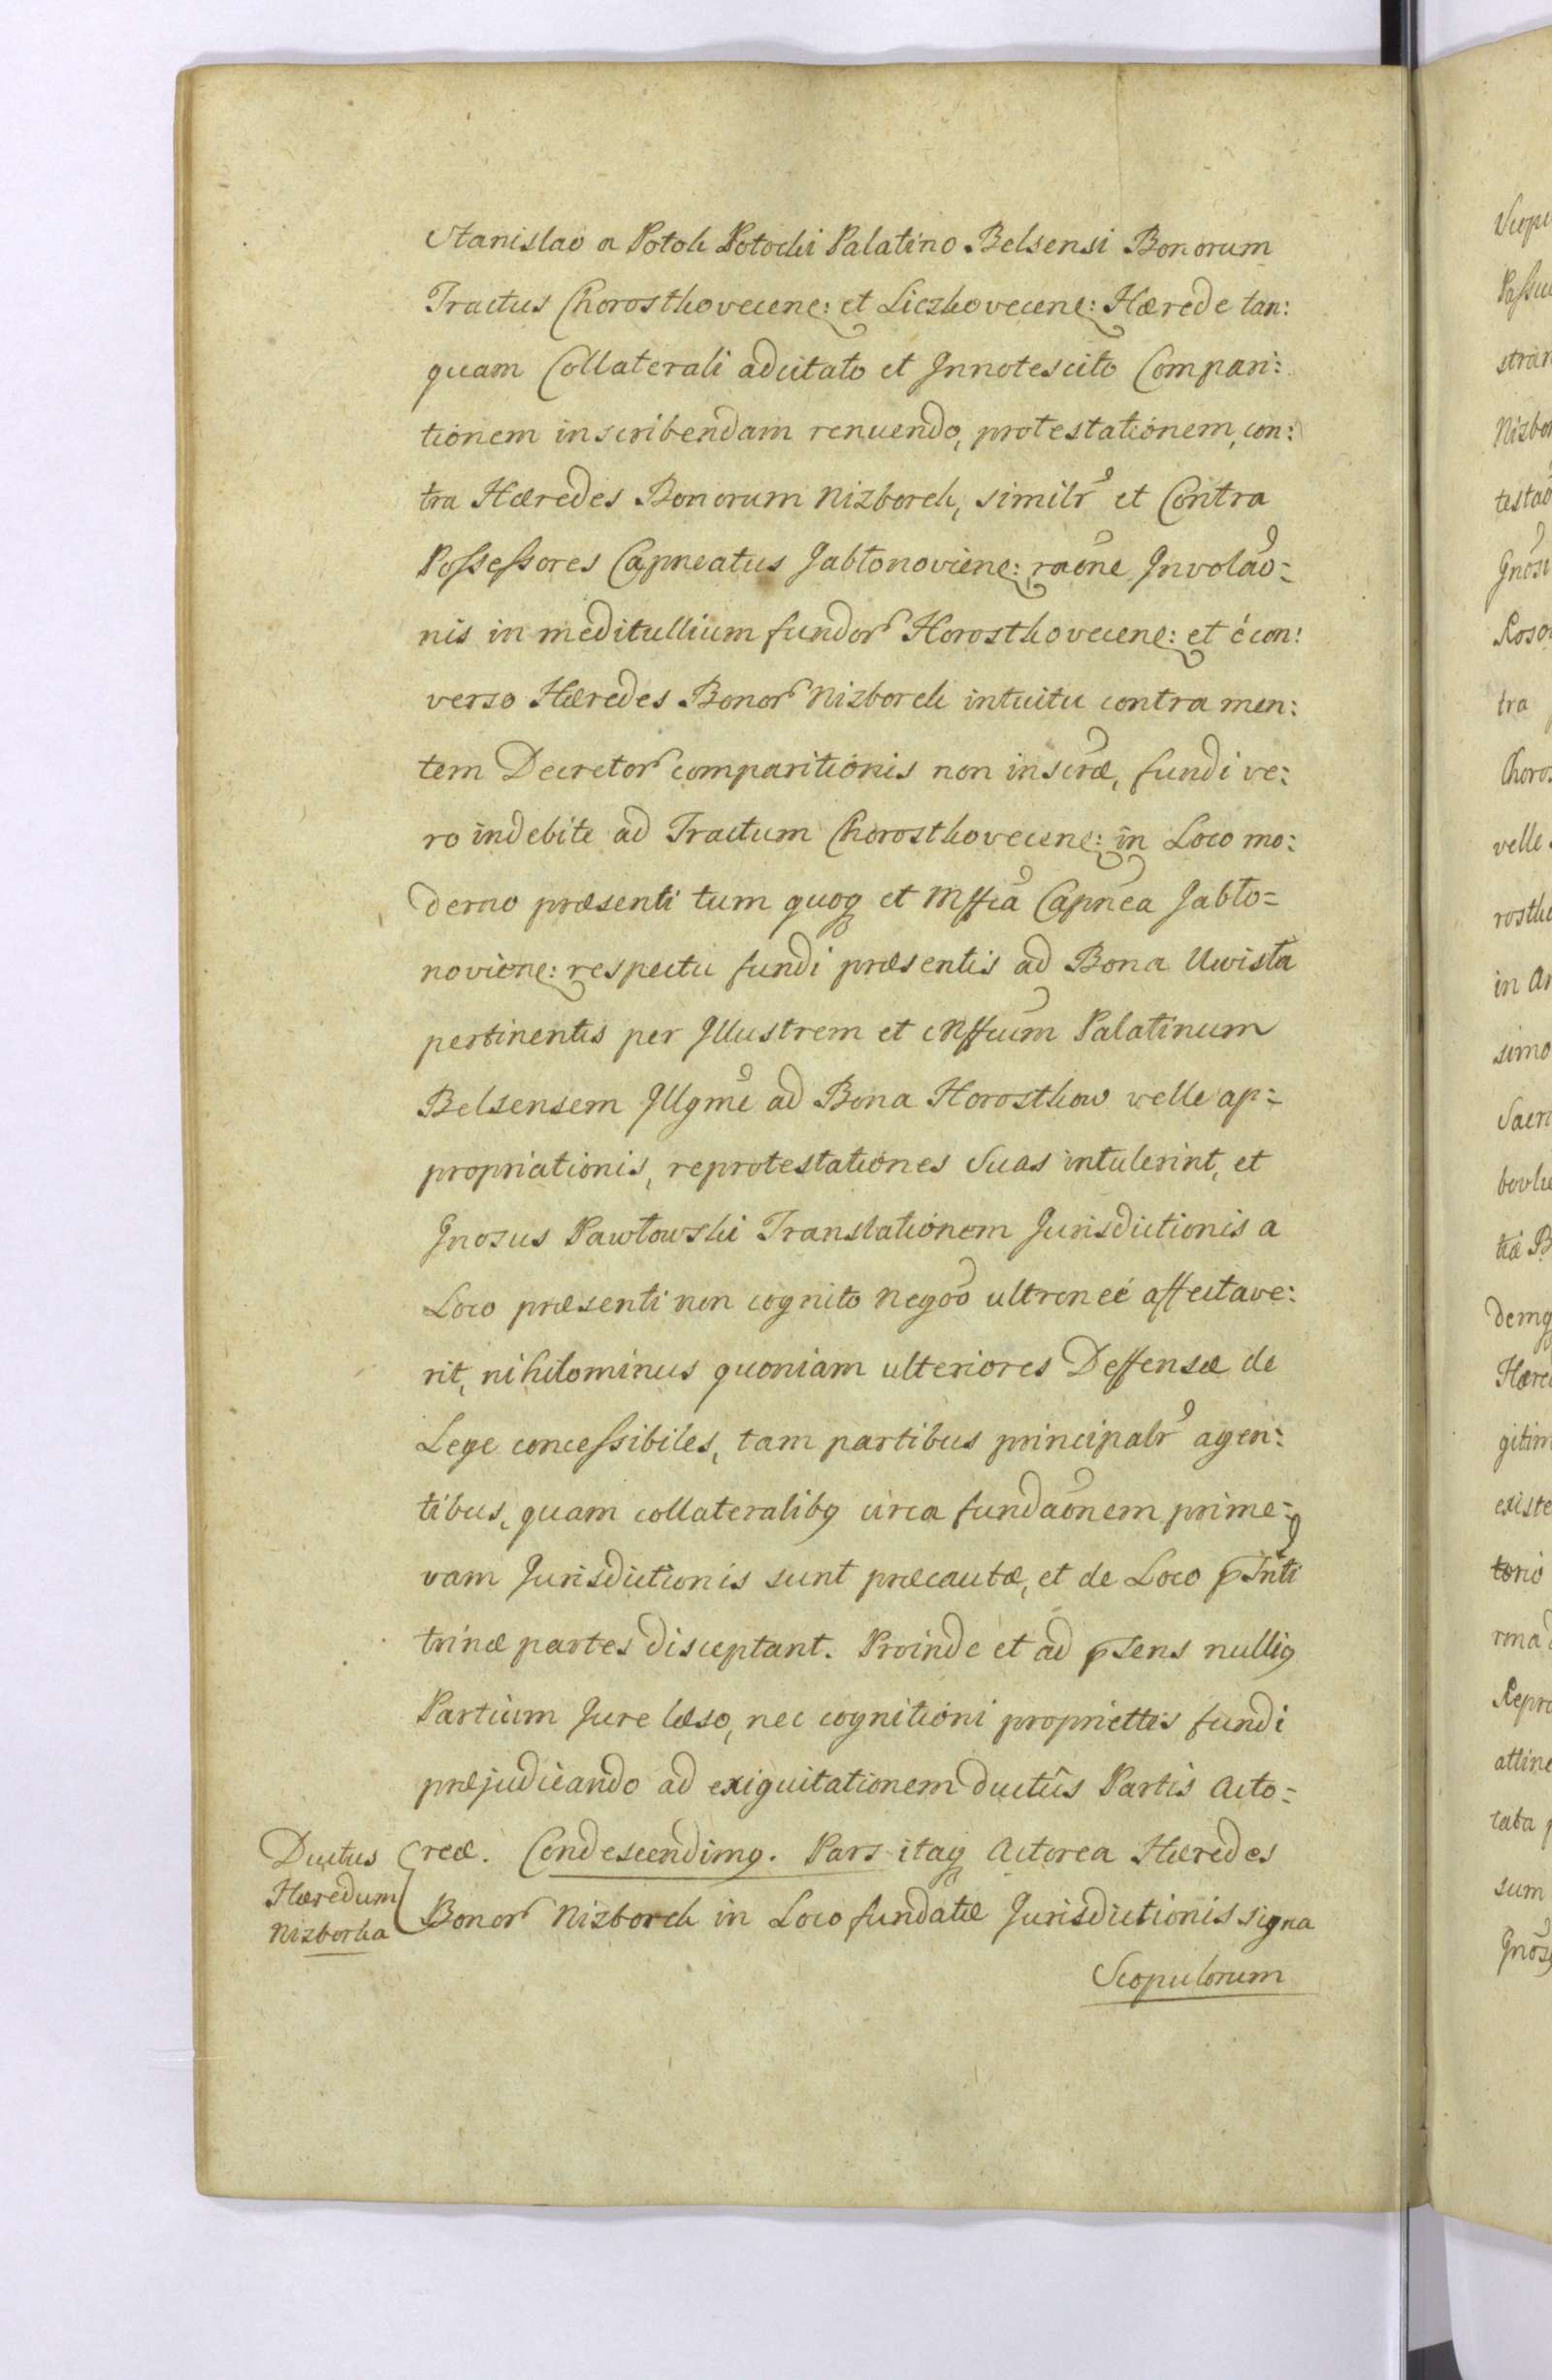 Stanislao a Potok Potocki Palatino Belsensi Bonorum
Tractus Chorostkovecen: et Liczkovecen: Hærede tan:
quam Collaterali adcitato et Innotescito Compari:
tionem inscribendam renuendo, protestationem, con:
tra Hæredes Bonorum Nizborek, similr et Contra
Possessores Capneatus Jabłonovien: raõne Involaõ=
nis in meditullium fundor Horostkovecen: et é con:
verso Hæredes Bonor Nizborek intuitu contra men:
tem Decretor comparitionis non inscræ, fundi ve:
ro indebite ad Tractum Chorostkovecen: in Loco mo:
derno præsenti tum quoq et Mffca Capnea Jabło=
novien: respectu fundi præsentis ad Bona Uwista
pertinentis per Illustrem et Mffcum Palatinum
Belsensem Illgme ad Bona Horostkow velle ap=
propriationis, reprotestationes Suas intulerint, et
Gnosus Pawłowski Translationem Jurisdictionis a
Loco præsenti non cognito Negoo ultroneé affectave:
rit, nihilominus quoniam ulteriores Deffensæ de
Lege concessibiles, tam partibus principalr agen:
tibus, quam collateralibq circa fundaõnem prime=
vam Jurisdictionis sunt præcautæ, et de Loco pSnti
trinæ partes disceptant. Proinde et ad pSens nulliq
Partium Jure læso, nec cognitioni propriettis fundi
præjudicando ad exiquitationem ductûs Partis Acto=
reæ. Condescendimq. Pars itaq Actorea Hæredes
Bonor Nizborek in Loco fundatæ Jurisdictionis signa
Scopulorum
Ductus
Hæredum
Nizborka
Scopu
Passu
stran
Nizbor
testaõ
Gnosu
Roso
tra
Choros
velle
rostko
in
simo
Sacr
bovlu
tiæ B
demq
Hæred
gitim
existe
torio
rma
Repro
attine
cata
sum
Gnosq